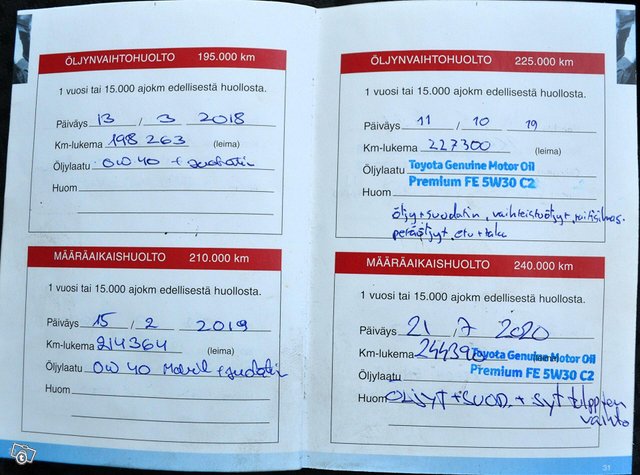 ÖLJYNVAIHTOHUOLTO 195.000 km
1 vuosi tai 15.000 ajokm edellisestä huollosta.
Päiväys 13 / 3 2018
Km-lukema 198 263 (leima)
Öljylaatu 0W40 + suodatin
Huom
MÄÄRÄAIKAISHUOLTO 210.000 km
1 vuosi tai 15.000 ajokm edellisestä huollosta.
Päiväys 15 / 2 2019
Km-lukema 214364 (leima)
Öljylaatu 0W40 Mobil + suodatin
Huom
ÖLJYNVAIHTOHUOLTO 225.000 km
1 vuosi tai 15.000 ajokm edellisestä huollosta.
Päiväys 11 / 10 19
Km-lukema 227300 (leima)
Öljylaatu Toyota Genuine Motor Oil
Premium FE 5W30 C2
Huom
öljy+suodatin, vaihteistoöljyt,
peräöljyt, etu+taka
MÄÄRÄAIKAISHUOLTO 240.000 km
1 vuosi tai 15.000 ajokm edellisestä huollosta.
Päiväys 21 / 7 2020
Km-lukema 244390 Toyota Genuine Motor Oil
Öljylaatu Premium FE 5W30 C2
Huom ÖLJYT + SUOD. + syt tulppien
vaihto
31